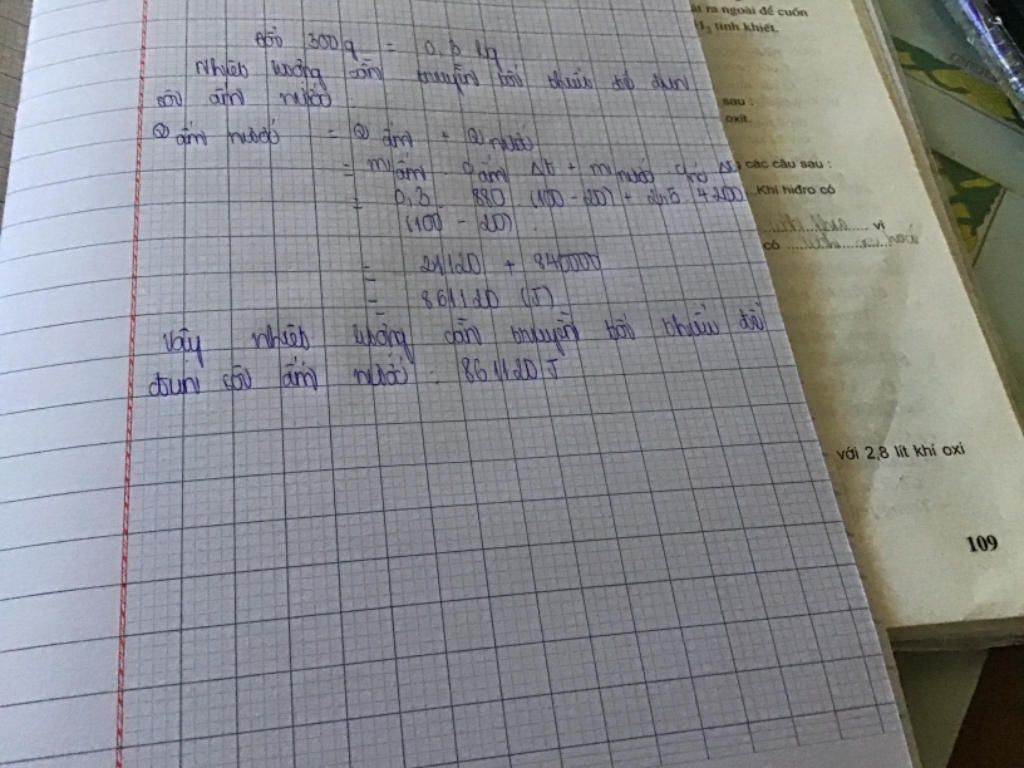 Đổi 300g = 0,3 kg
Nhiệt lượng cần truyền tối thiểu để đun
sôi ấm nước
Q ấm nước = Q ấm + Q nước
= m ấm . c ấm Δt + m nước .
= 0,3 . 880 (100 - 20) + 2,5 . 4200
(100 - 20)
= 21120 + 840000
= 861120 (J)
Vậy nhiệt lượng cần truyền tối thiểu để
đun sôi ấm nước : 861120 J
ra ngoài để cuốn
tinh khiết.
sau :
oxit.
các câu sau :
Khí hiđro có
vì
có
với 2,8 lít khí oxi
109